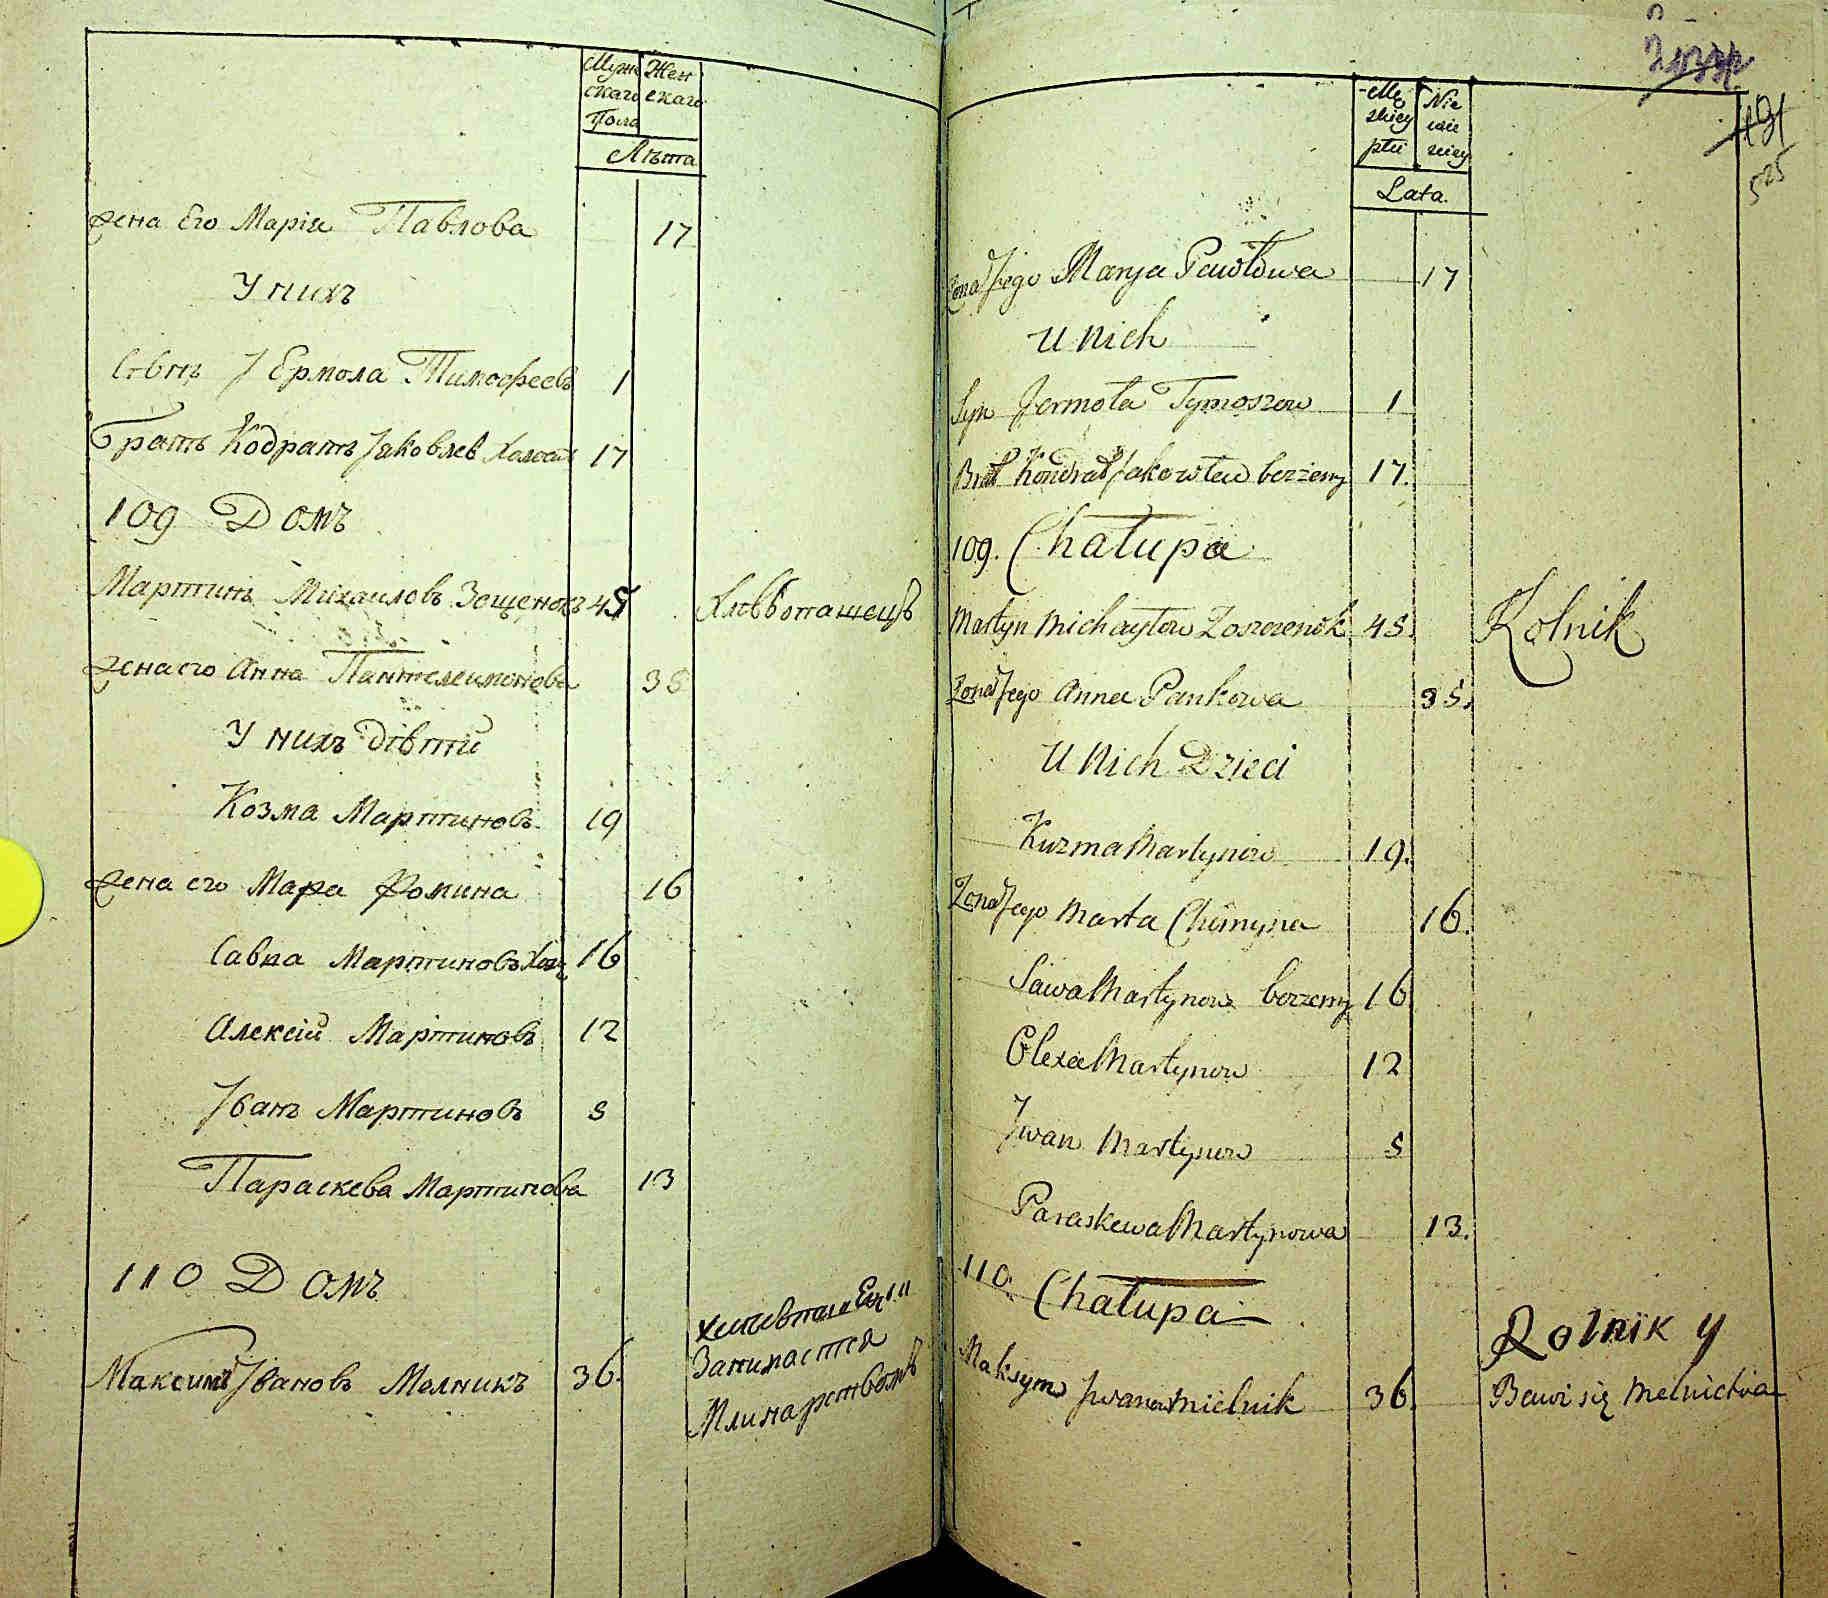 Муж Жен
скаго скаго
Пола
Лѣта
жена Его Марія Павлова 17
У нихъ
Сынъ Ермола Тимофеевъ 1
Братъ Кодратъ Яковлев Холост 17
109 Домъ
Мартинъ Михаиловъ Зощенокъ 45 Хлѣбопашецъ
жена его Анна Пантелеимонова 35
У нихъ дѣти
Козма Мартиновъ 19
жена его Мара Фомина 16
Савка Мартиновъ Хол 16
Алексій Мартиновъ 12
Іванъ Мартиновъ 5
Параскева Мартинова 13
110 Домъ
Максимъ Івановъ Мелникъ 36.
Занимается
Млинарствомъ
191
525
Mę Nie
skiey wie
płci sciey
Lata.
Żona Jego Marya Pawłowa 17
U Nich
Syn Jermoła Tymoszow 1
Brat Kondrat Jakowlew bezżenny 17.
109. Chałupa
Martyn Michayłow Zoszczenok 45. Rolnik
Żona Jego Anna Pankowa 35.
U Nich Dzieci
Kuzma Martynow 19.
Żona Jego Marta Chomyna 16.
Sawa Martynow bezżenny 16
Olexa Martynow 12
Jwan Martynow 5
Paraskewa Martynowa 13.
110. Chałupa
Maksym Jwanow Mielnik 36. Rolnik y
Bawi się Melnictwa